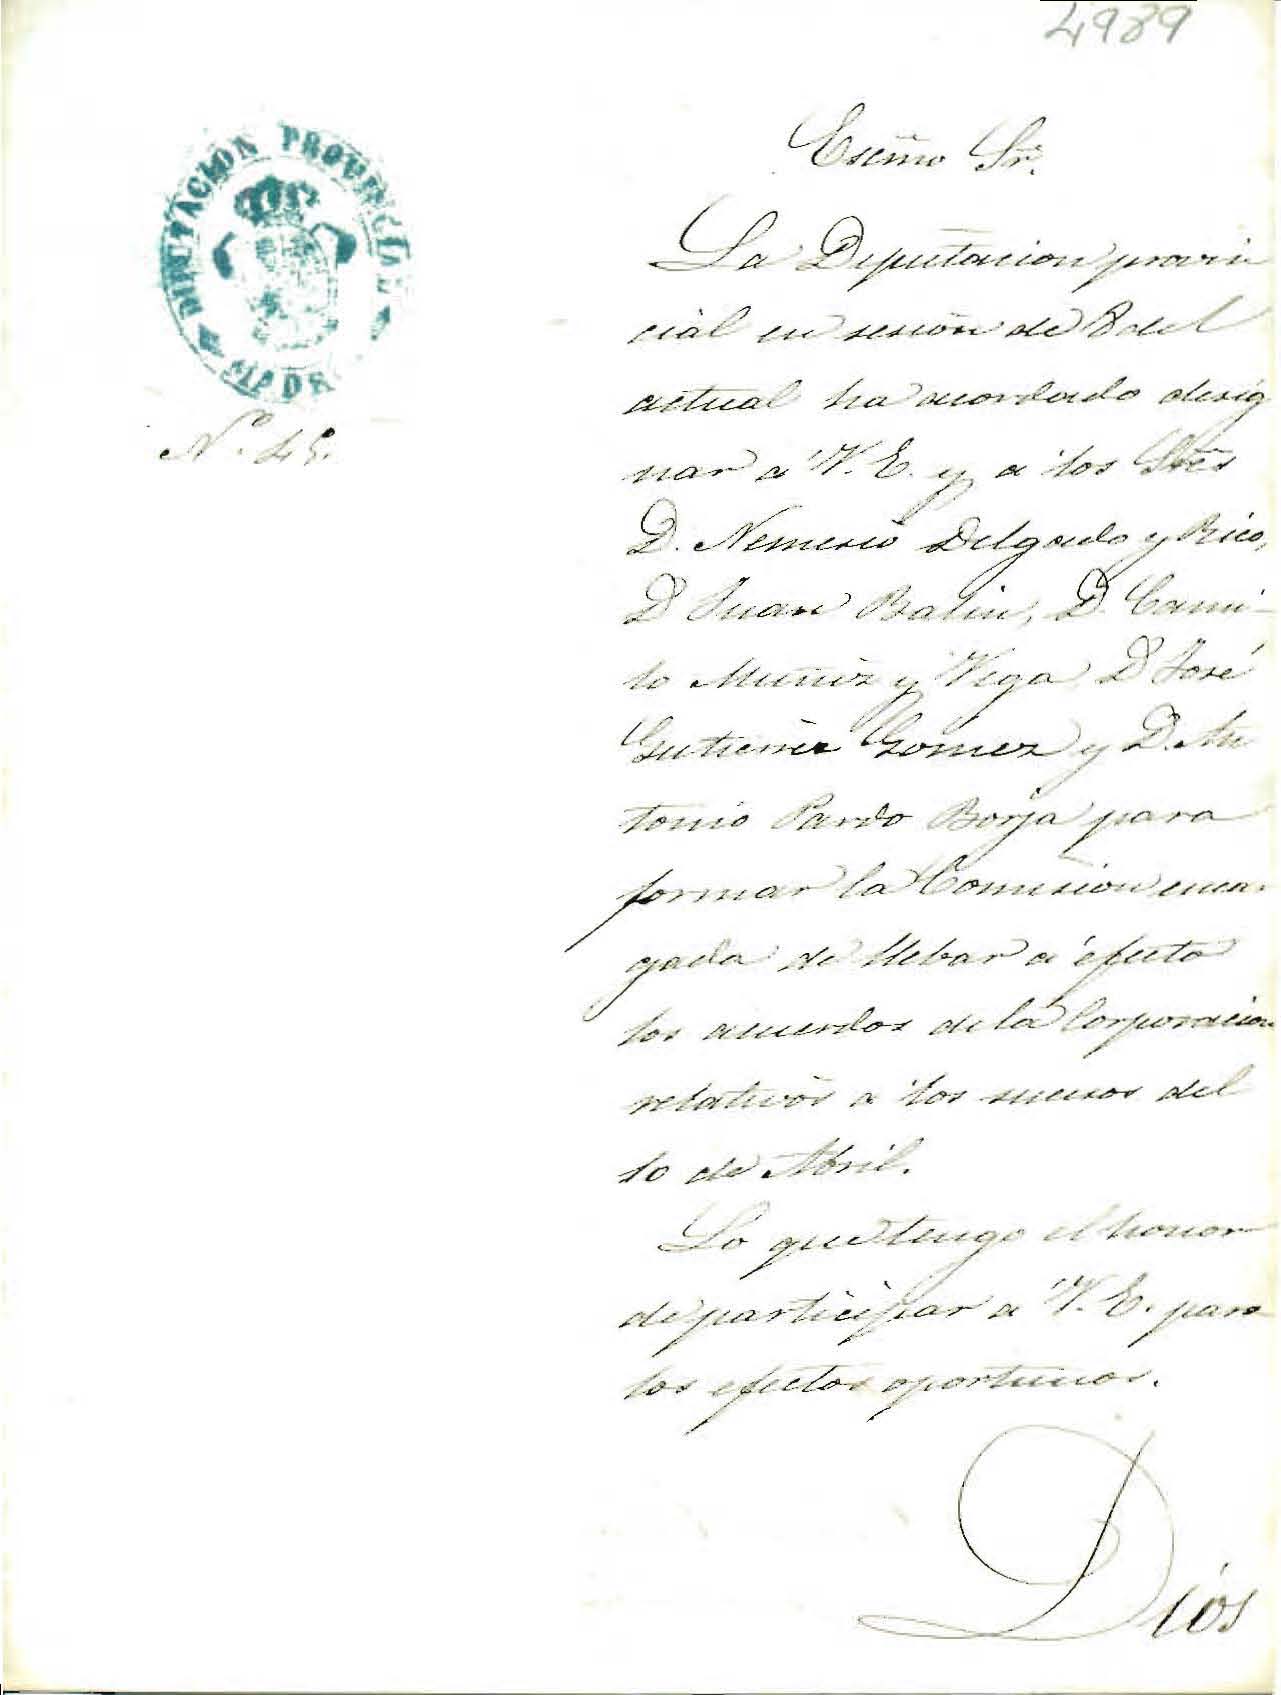 4989
DIPUTACION PROVINCIAL
MADRID
Nº. 45.
Escmo Sr.
La Diputacion provin
cial en sesion de 8 del
actual ha acordado desig
nar a V. E. y a los Sres
D. Nemesio Delgado y Rico,
D. Juan Balin, D. Cami-
lo Muñiz y Vega, D. José
Gutierrez Gomez y D. An
tonio Pardo Borja para
formar la Comision encar
gada de llebar a efecto
los acuerdos de la Corporacion
relativos a los sucesos del
10 de Abril.
Lo que tengo el honor
de participar a V. E. para
los efectos oportunos.
Dios